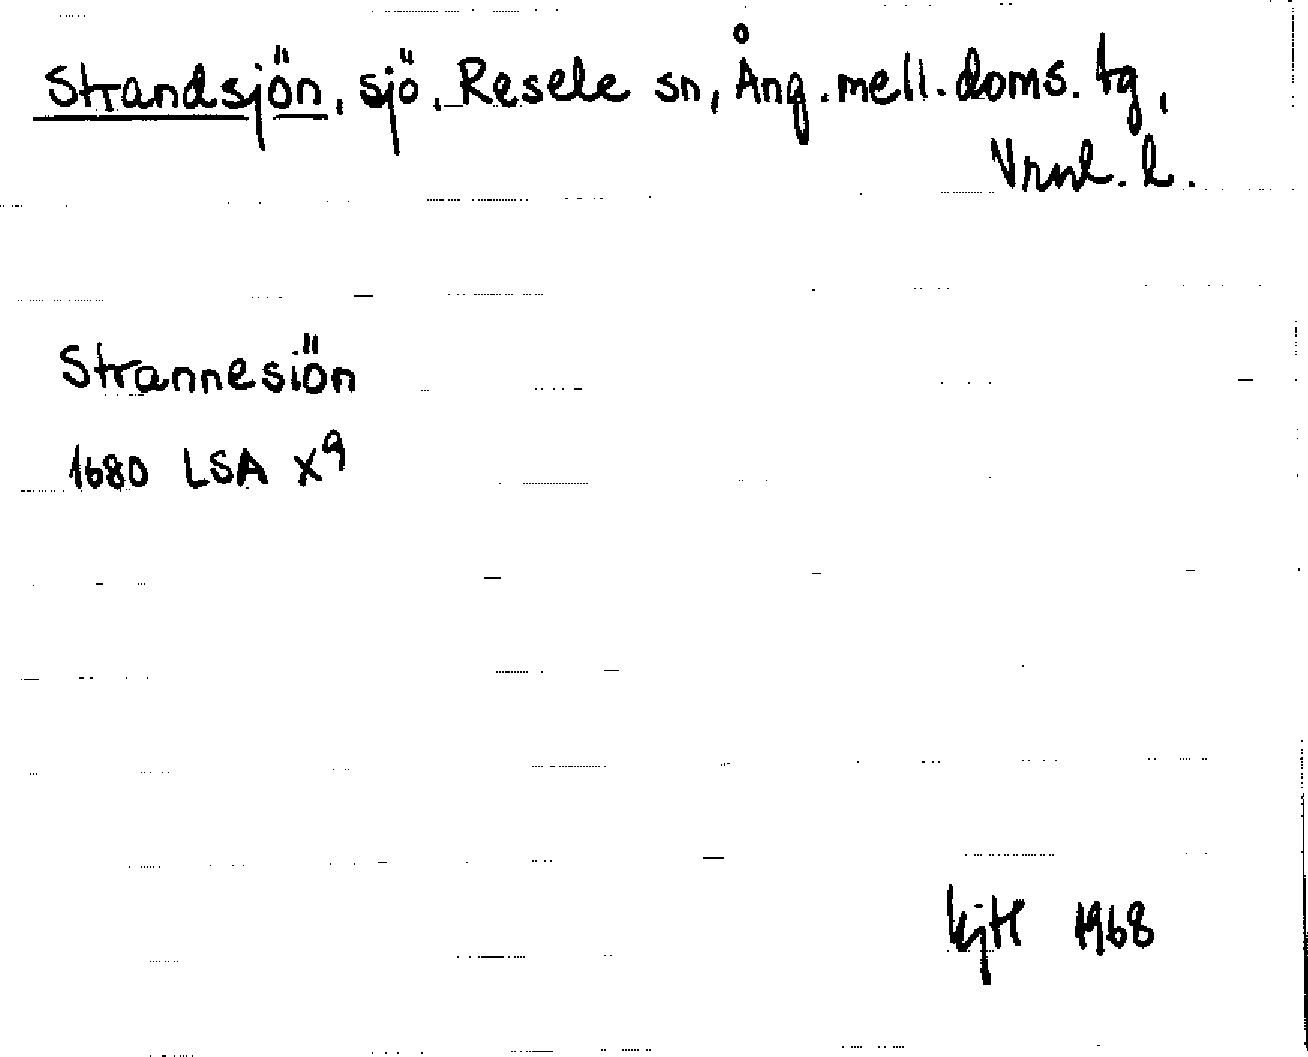 Strandsjön, sjö, Resele sn, Ång. mell. doms. tg,
Vrnl. l.
Strannesiön
1680 LSA X9
KjH 1968